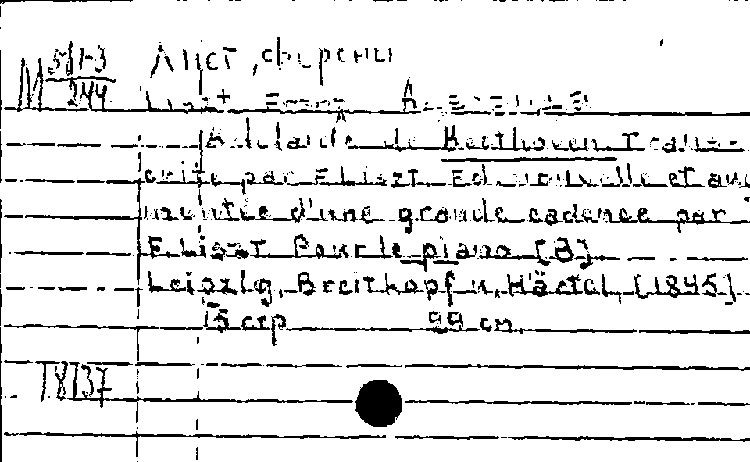 М 561-3
244
Лист, Ференц
Liszt Franz
Adelaide de Beethoven. Trans-
crite par F. Liszt. Ed. nouvelle et aug
mentée d'une grande cadence par
F. Liszt. Pour le piano [B]
Leipzig, Breitkopf u. Härtel, [1845]
15 стр 29 см.
18137